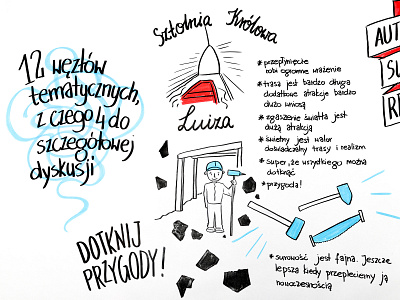 12 węzłów
tematycznych,
z czego 4 do
szczegółowej
dyskusji
DOTKNIJ
PRZYGODY!
Sztolnia Królowa
Luiza
* przepłynięcie
robi ogromne wrażenie
* trasa jest bardzo długa
dodatkowe atrakcje bardzo
dużo wnoszą
* zgaszenie światła jest
dużą atrakcją
* świetny jest walor
doświadczalny trasy i realizm
* super, że wszystkiego można
dotknąć
* przygoda!
* surowość jest fajna. Jeszcze
lepsza kiedy przepleciemy ją
nowoczesnością
AUT
SU
RE